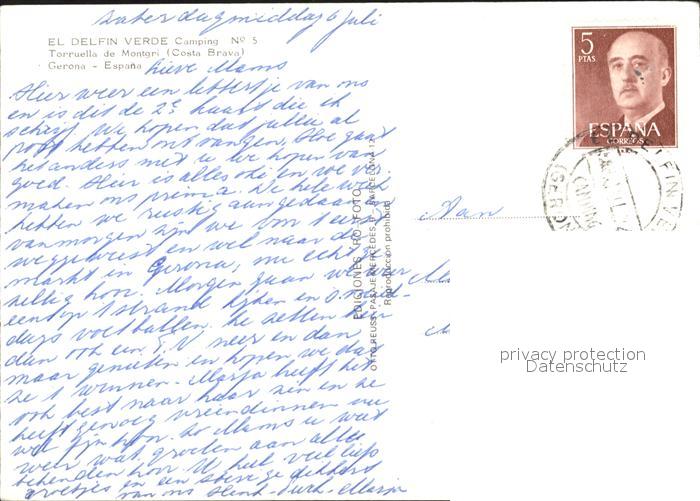 Zaterdagmiddag 6 juli
EL DELFIN VERDE Camping Nº 5
Torruella de Montgri (Costa Brava)
Gerona - España
Lieve Mams
Hier weer een lettertje van ons
en is dit de 2e kaart die ik
schrijf. We hopen dat jullie al
post hebben ontvangen, Hoe gaat
het anders met u we hopen van
goed. Hier is alles oké en we ver-
maken ons prima. De hele week
hebben we rustig aangedaan
vanmorgen zijn we om 1 eerst
weggeweest en wel naar de
markt in Gerona, nu echt ge-
zellig hoor. Morgen gaan we weer
eens op 't strand kijken en 's mid-
dags voetballen. Ze zetten hier
dan ook een T.V neer en dan
maar genieten en hopen we dat
ze 't winnen. Marja heeft het
ook best naar haar zin en ze
heeft genoeg vriendinnen nu
wel fijn hoor. Zo Mams u weet
weer wat groeten aan alle
bekenden hoor U heel veel liefs
groetjes en een stevige dikkerd
van ons Henk - - Marja
EDICIONES RO - FOTO
OTTO REUSS - PASAJE MERCEDES, - BARCELONA
Reproducción prohibida
5
PTAS.
ESPAÑA
CORREOS
DELFIN VE
Aan
privacy protection
Datenschutz